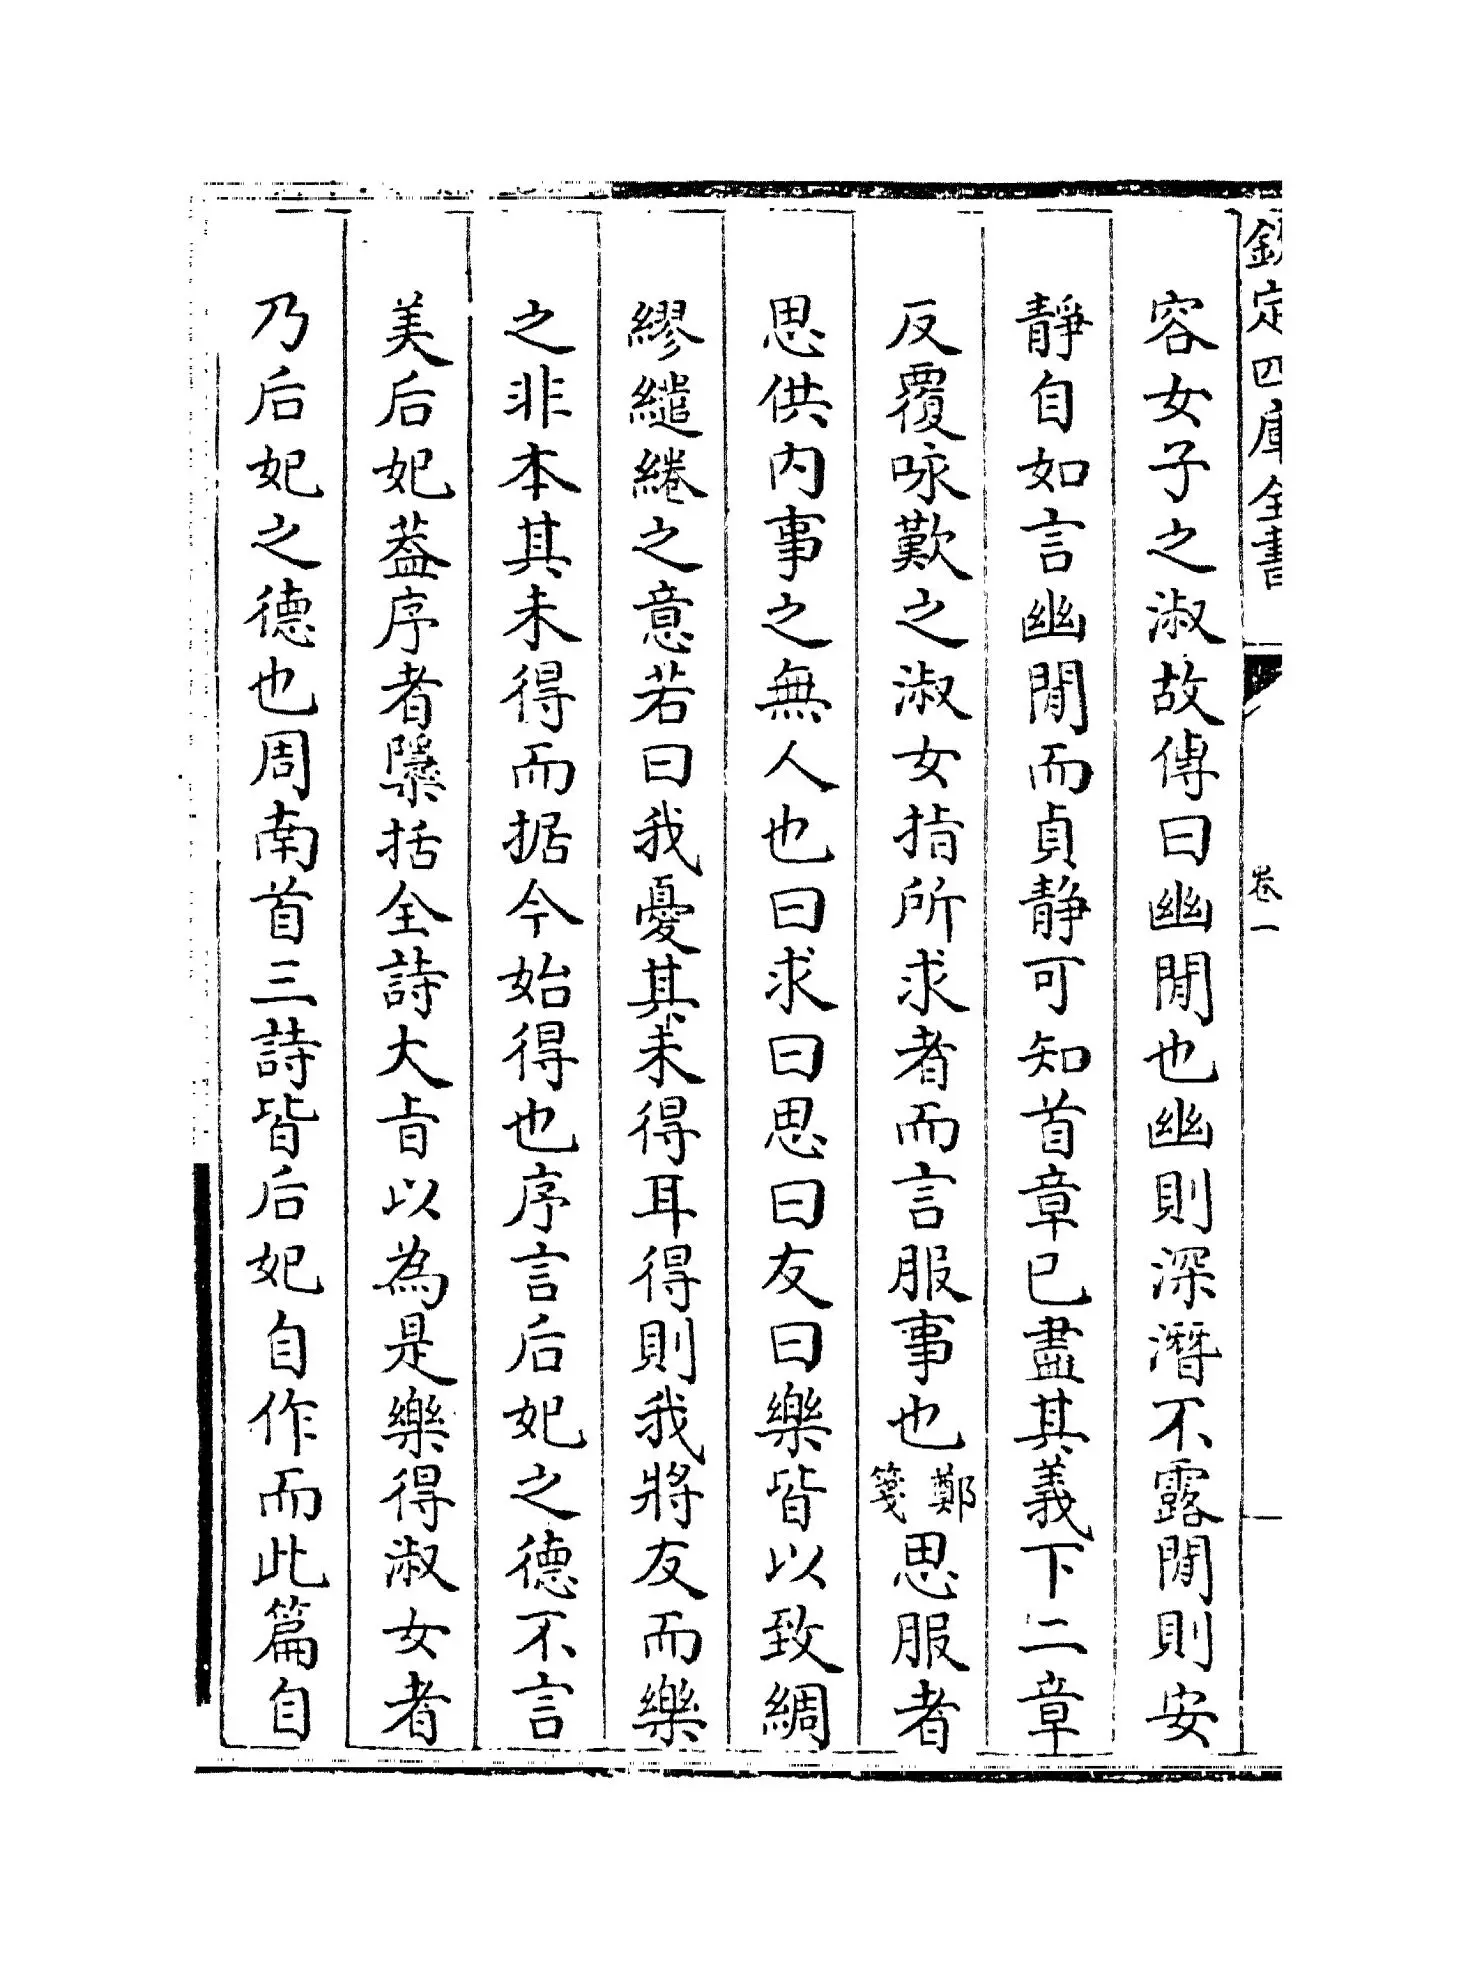 欽定四庫全書
卷一
容女子之淑故傳曰幽閒也幽則深潛不露閒則安
靜自如言幽閒而貞静可知首章已盡其義下二章
反覆咏歎之淑女指所求者而言服事也鄭箋思服者
思供内事之無人也曰求曰思曰友曰樂皆以致綢
繆繾綣之意若曰我憂其未得耳得則我將友而樂
之非本其未得而据今始得也序言后妃之德不言
美后妃葢序者櫽括全詩大旨以為是樂得淑女者
乃后妃之德也周南首三詩皆后妃自作而此篇自